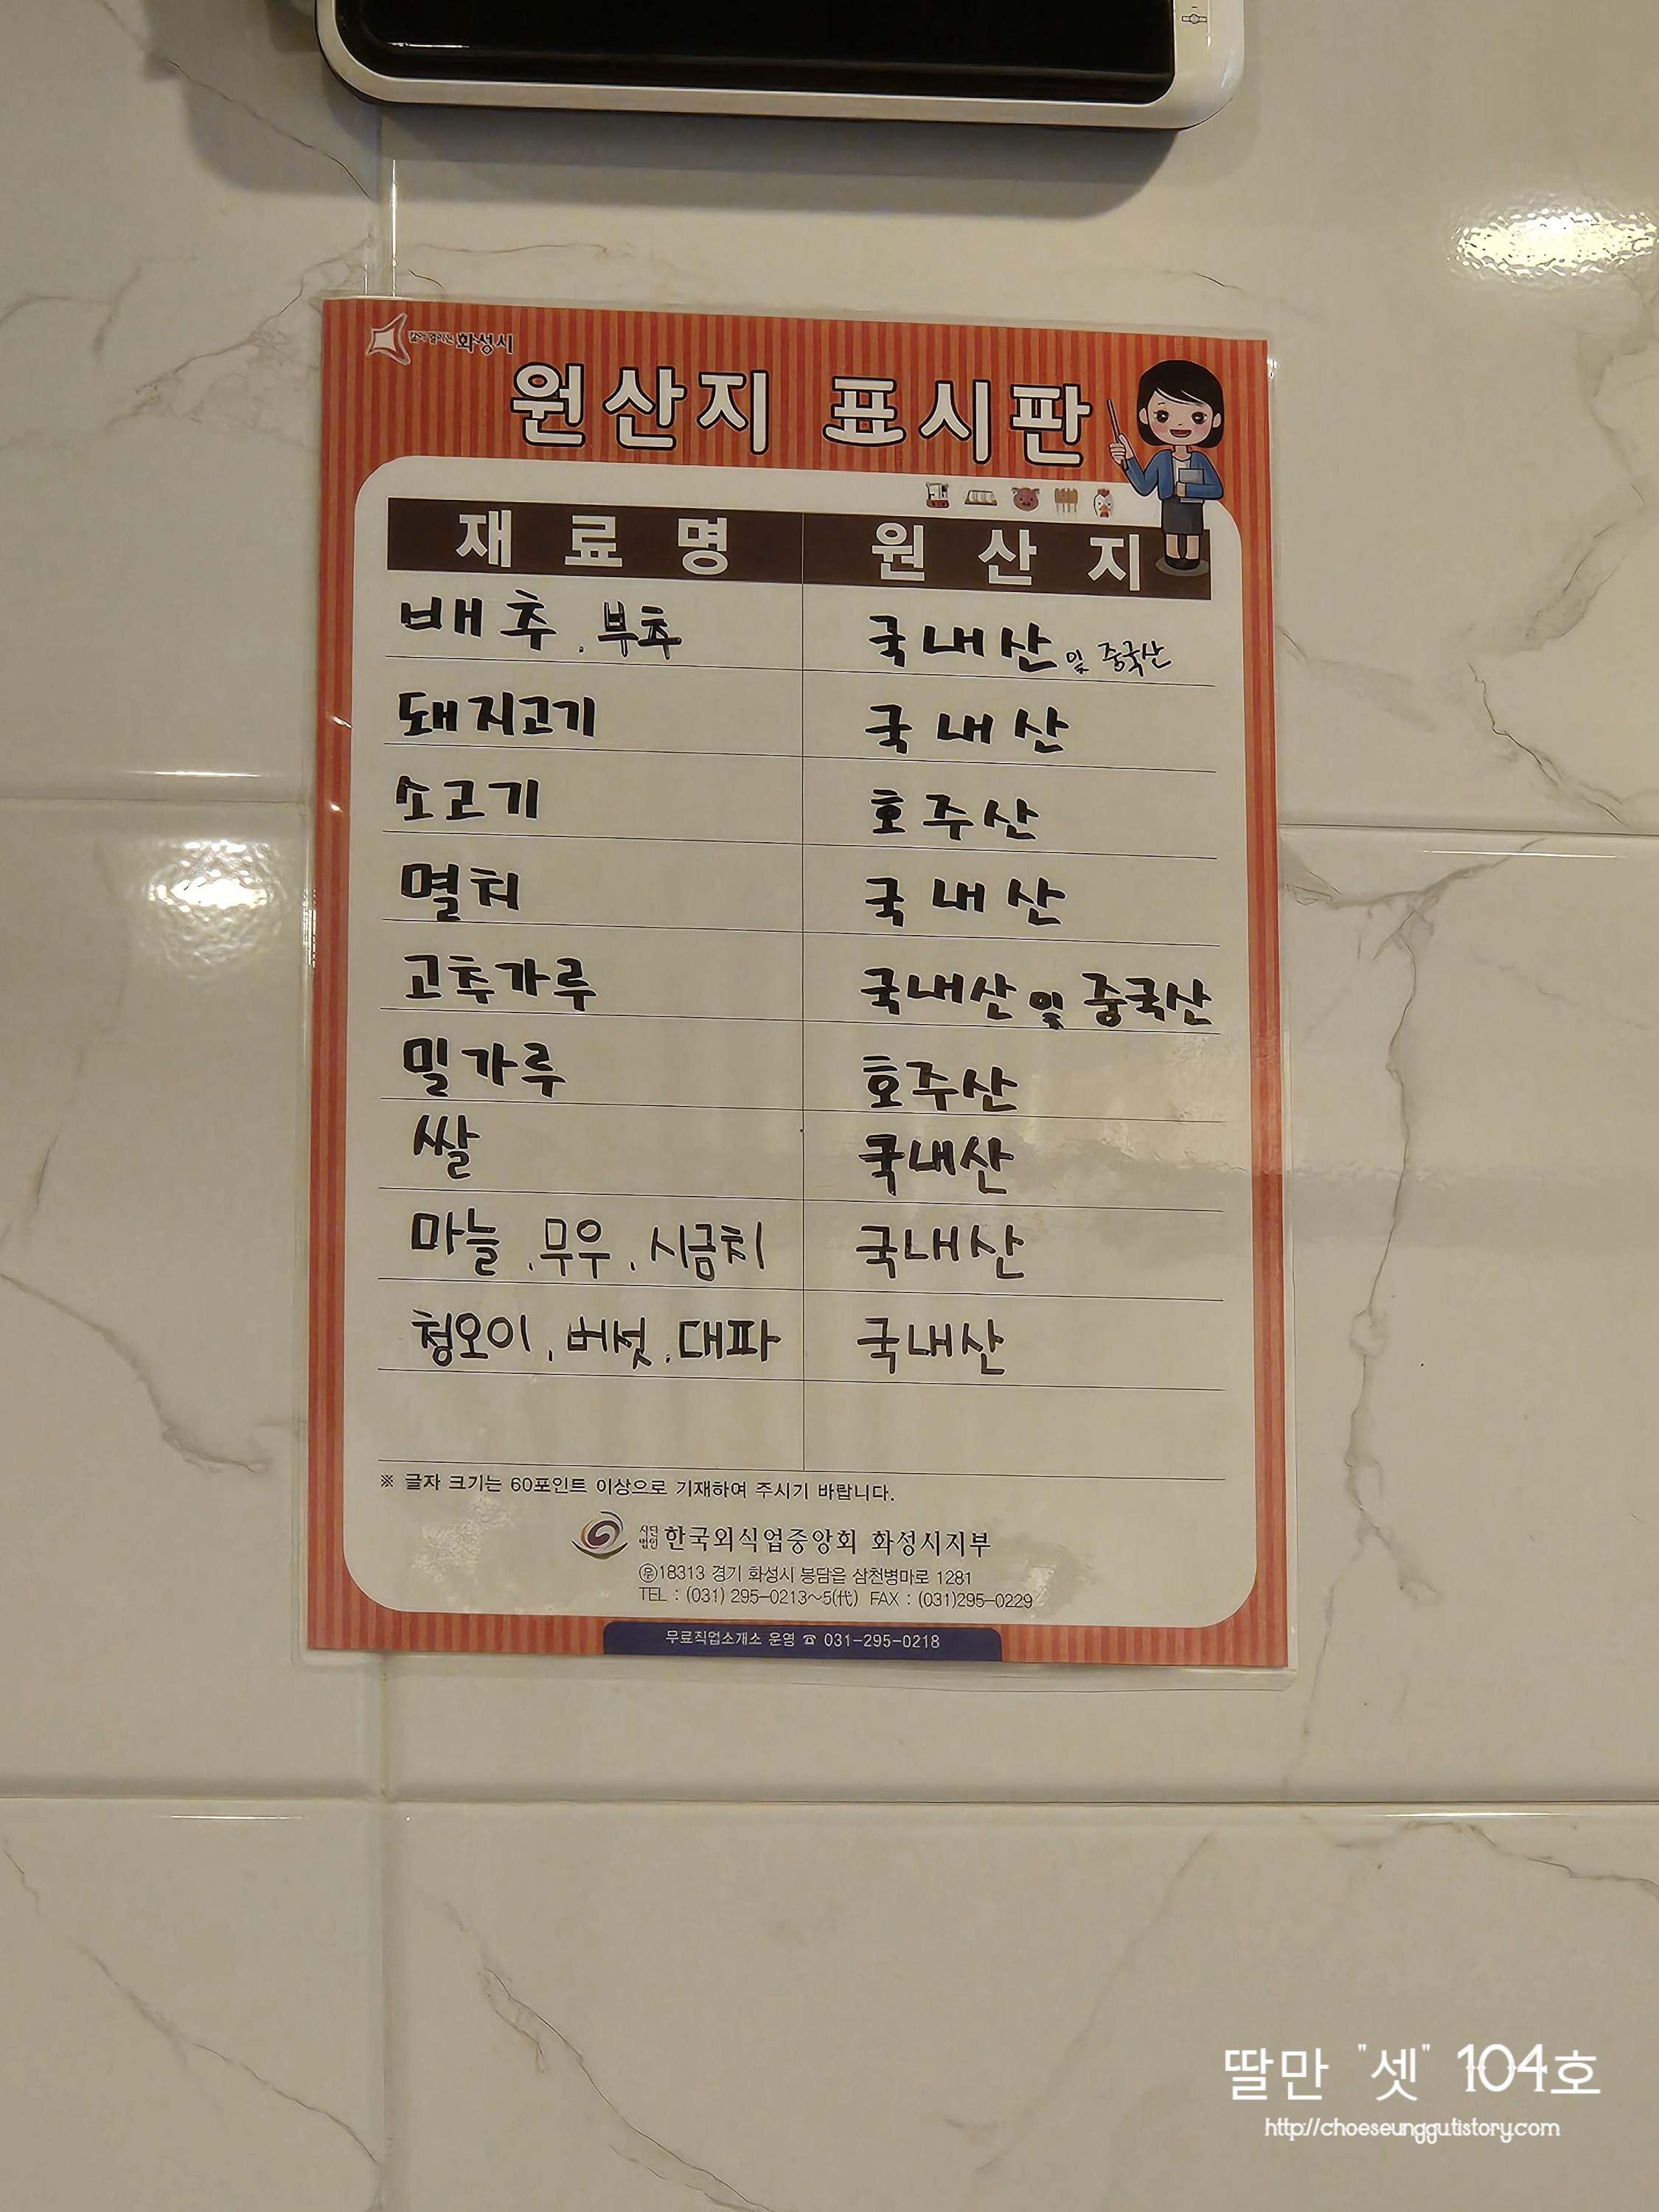 화성시
원산지 표시판
재료명 원산지
배추, 부추 국내산 및 중국산
돼지고기 국내산
소고기 호주산
멸치 국내산
고추가루 국내산 및 중국산
밀가루 호주산
쌀 국내산
마늘, 무우, 시금치 국내산
청오이, 버섯, 대파 국내산
※ 글자 크기는 60포인트 이상으로 기재하여 주시기 바랍니다.
사단법인 한국외식업중앙회 화성시지부
㉾18313 경기 화성시 봉담읍 삼천병마로 1281
TEL : (031) 295-0213~5(代) FAX : (031)295-0229
무료직업소개소 운영 ☎ 031-295-0218
딸만 "셋" 104호
http://choeseunggu.tistory.com